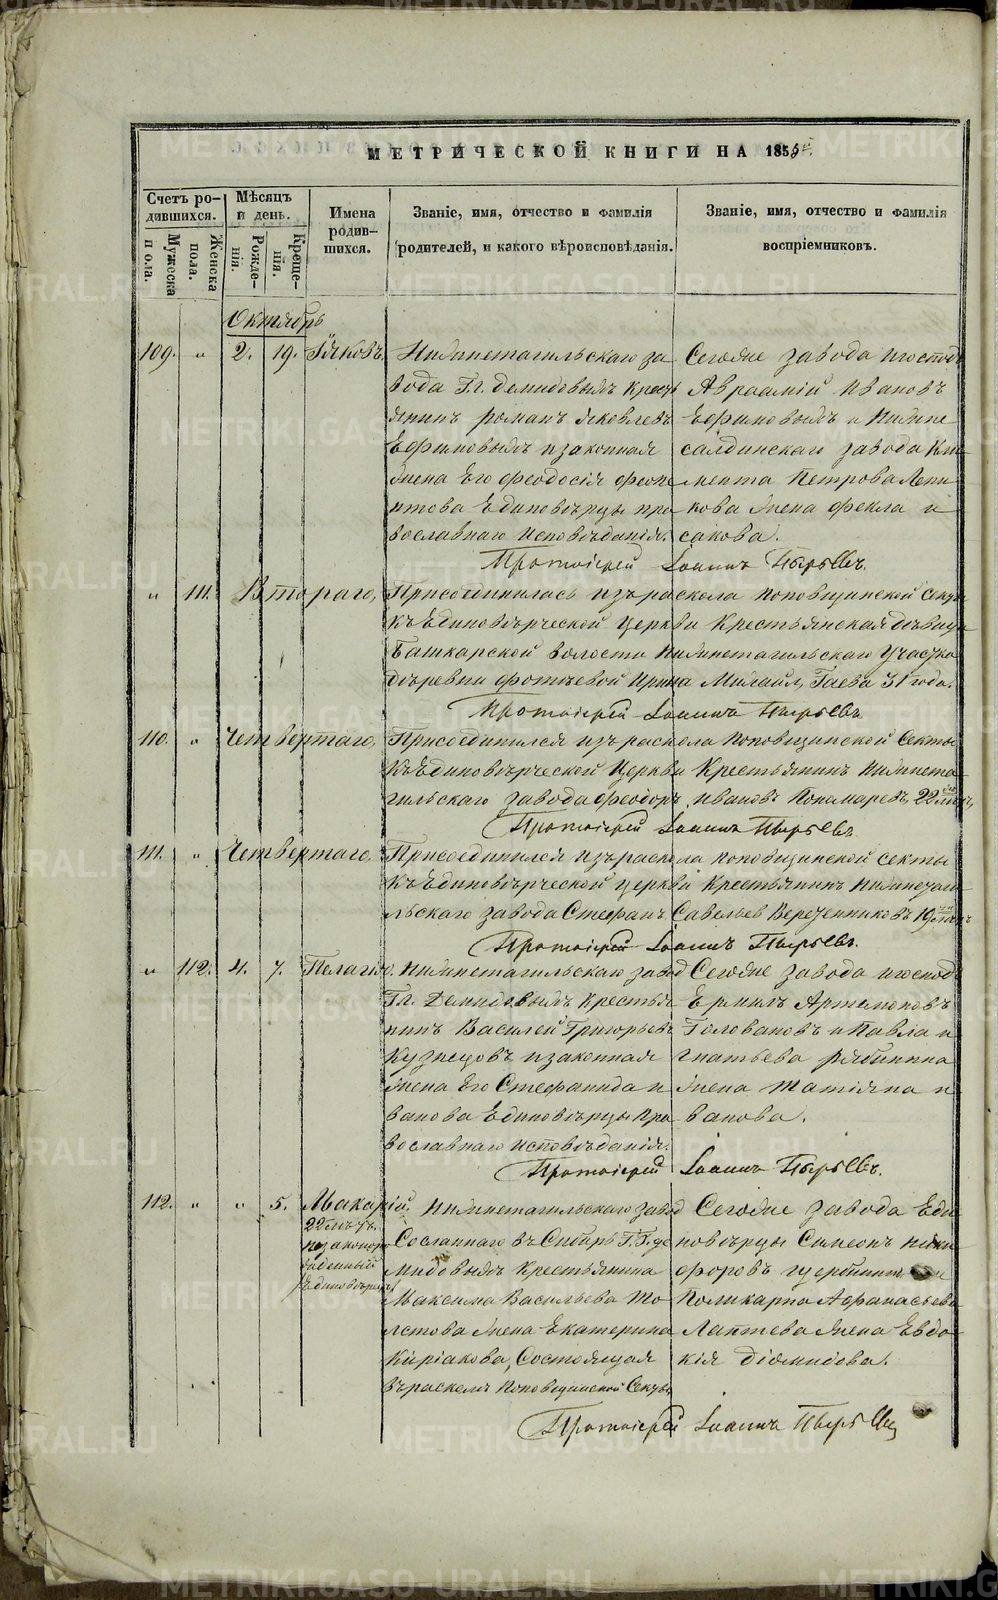 МЕТРИЧЕСКОЙ КНИГИ НА 1855
Счетъ ро-
дившихся.
Мужеска пола.
Женска пола.
Мѣсяцъ
и день.
Рожде-
нія.
Креще-
нія.
Имена
родив-
шихся.
Званіе, имя, отчество и фамилія
родителей, и какого вѣроисповѣданія.
Званіе, имя, отчество и фамилія
воспріемниковъ.
Октябрь
109. " 2. 19. Іяковъ.
Нижнетагильскаго за
вода Гг. Демидовыхъ Кресть
янинъ романъ яковлевъ
Ефимовыхъ и законная
жена Его феодосія
итова Единовѣрцы пра
вославнаго исповѣданія.
Сегоже завода
Авраамій Ивановъ
Ефимовыхъ и Нижне
салдинскаго завода Кли
мента Петрова
кова жена фекла и
сакова.
Протоіерей Іоаннъ Пырьевъ.
" 111. Втораго,
Присоединилась изъ раскола поповщинской Секты
къ Единовѣрческой церкви Крестьянская дѣвица
Башкарской волости Нижнетагильскаго Участка
деревни фотѣевой Ирина Михаил, Гаева 31 года.
Протоіерей Іоаннъ Пырьевъ
110. " Четвертаго,
Присоединился изъ раскола Поповщинской Секты
къ Единовѣрческой Церкви Крестьянинъ Нижнета
гильскаго завода феодоръ Ивановъ Пономаревъ, 22
Протоіерей Іоаннъ Пырьевъ
111. " Четвертаго,
Присоединился изъ раскола поповщинской секты
къ Единовѣрческой церкви Крестьянинъ Нижнетаги
льскаго завода Стефанъ Савельев Веретенниковъ 19
Протоіерей Іоаннъ Пырьевъ.
" 112. 4. 7. Пелагія.
Нижнетагильскаго завод
Гг. Демидовыхъ Крестья
нинъ Василей Григорьевъ
Кузнецовъ и законная
жена Его Стефанида и
ванова Единовѣрцы Пра
вославнаго исповѣданія.
Сегоже завода
Ермилъ Артемоновъ
Головановъ и Павла и
гнатьева рябинина
жена Татіяна и
ванова.
Протоіерей Іоаннъ Пырьевъ.
112. " " 5. Макарій.
незаконоро
жденный
Нижнетагильскаго завод
Сосланнаго въ Сибирь Г.Г. де
мидовыхъ Крестьянина
Максима Васильева То
лстова жена Екатерина
Киріакова, Состоящая
въ расколѣ Поповщинской Секты
Сегоже завода Еди
новѣрцы Симеонъ ники
форовъ
Поликарпа Афанасьева
Лаптева жена Евдо
кія діомидова.
Протоіерей Іоаннъ Пырьевъ
METRIKI.GASO-URAL.RU